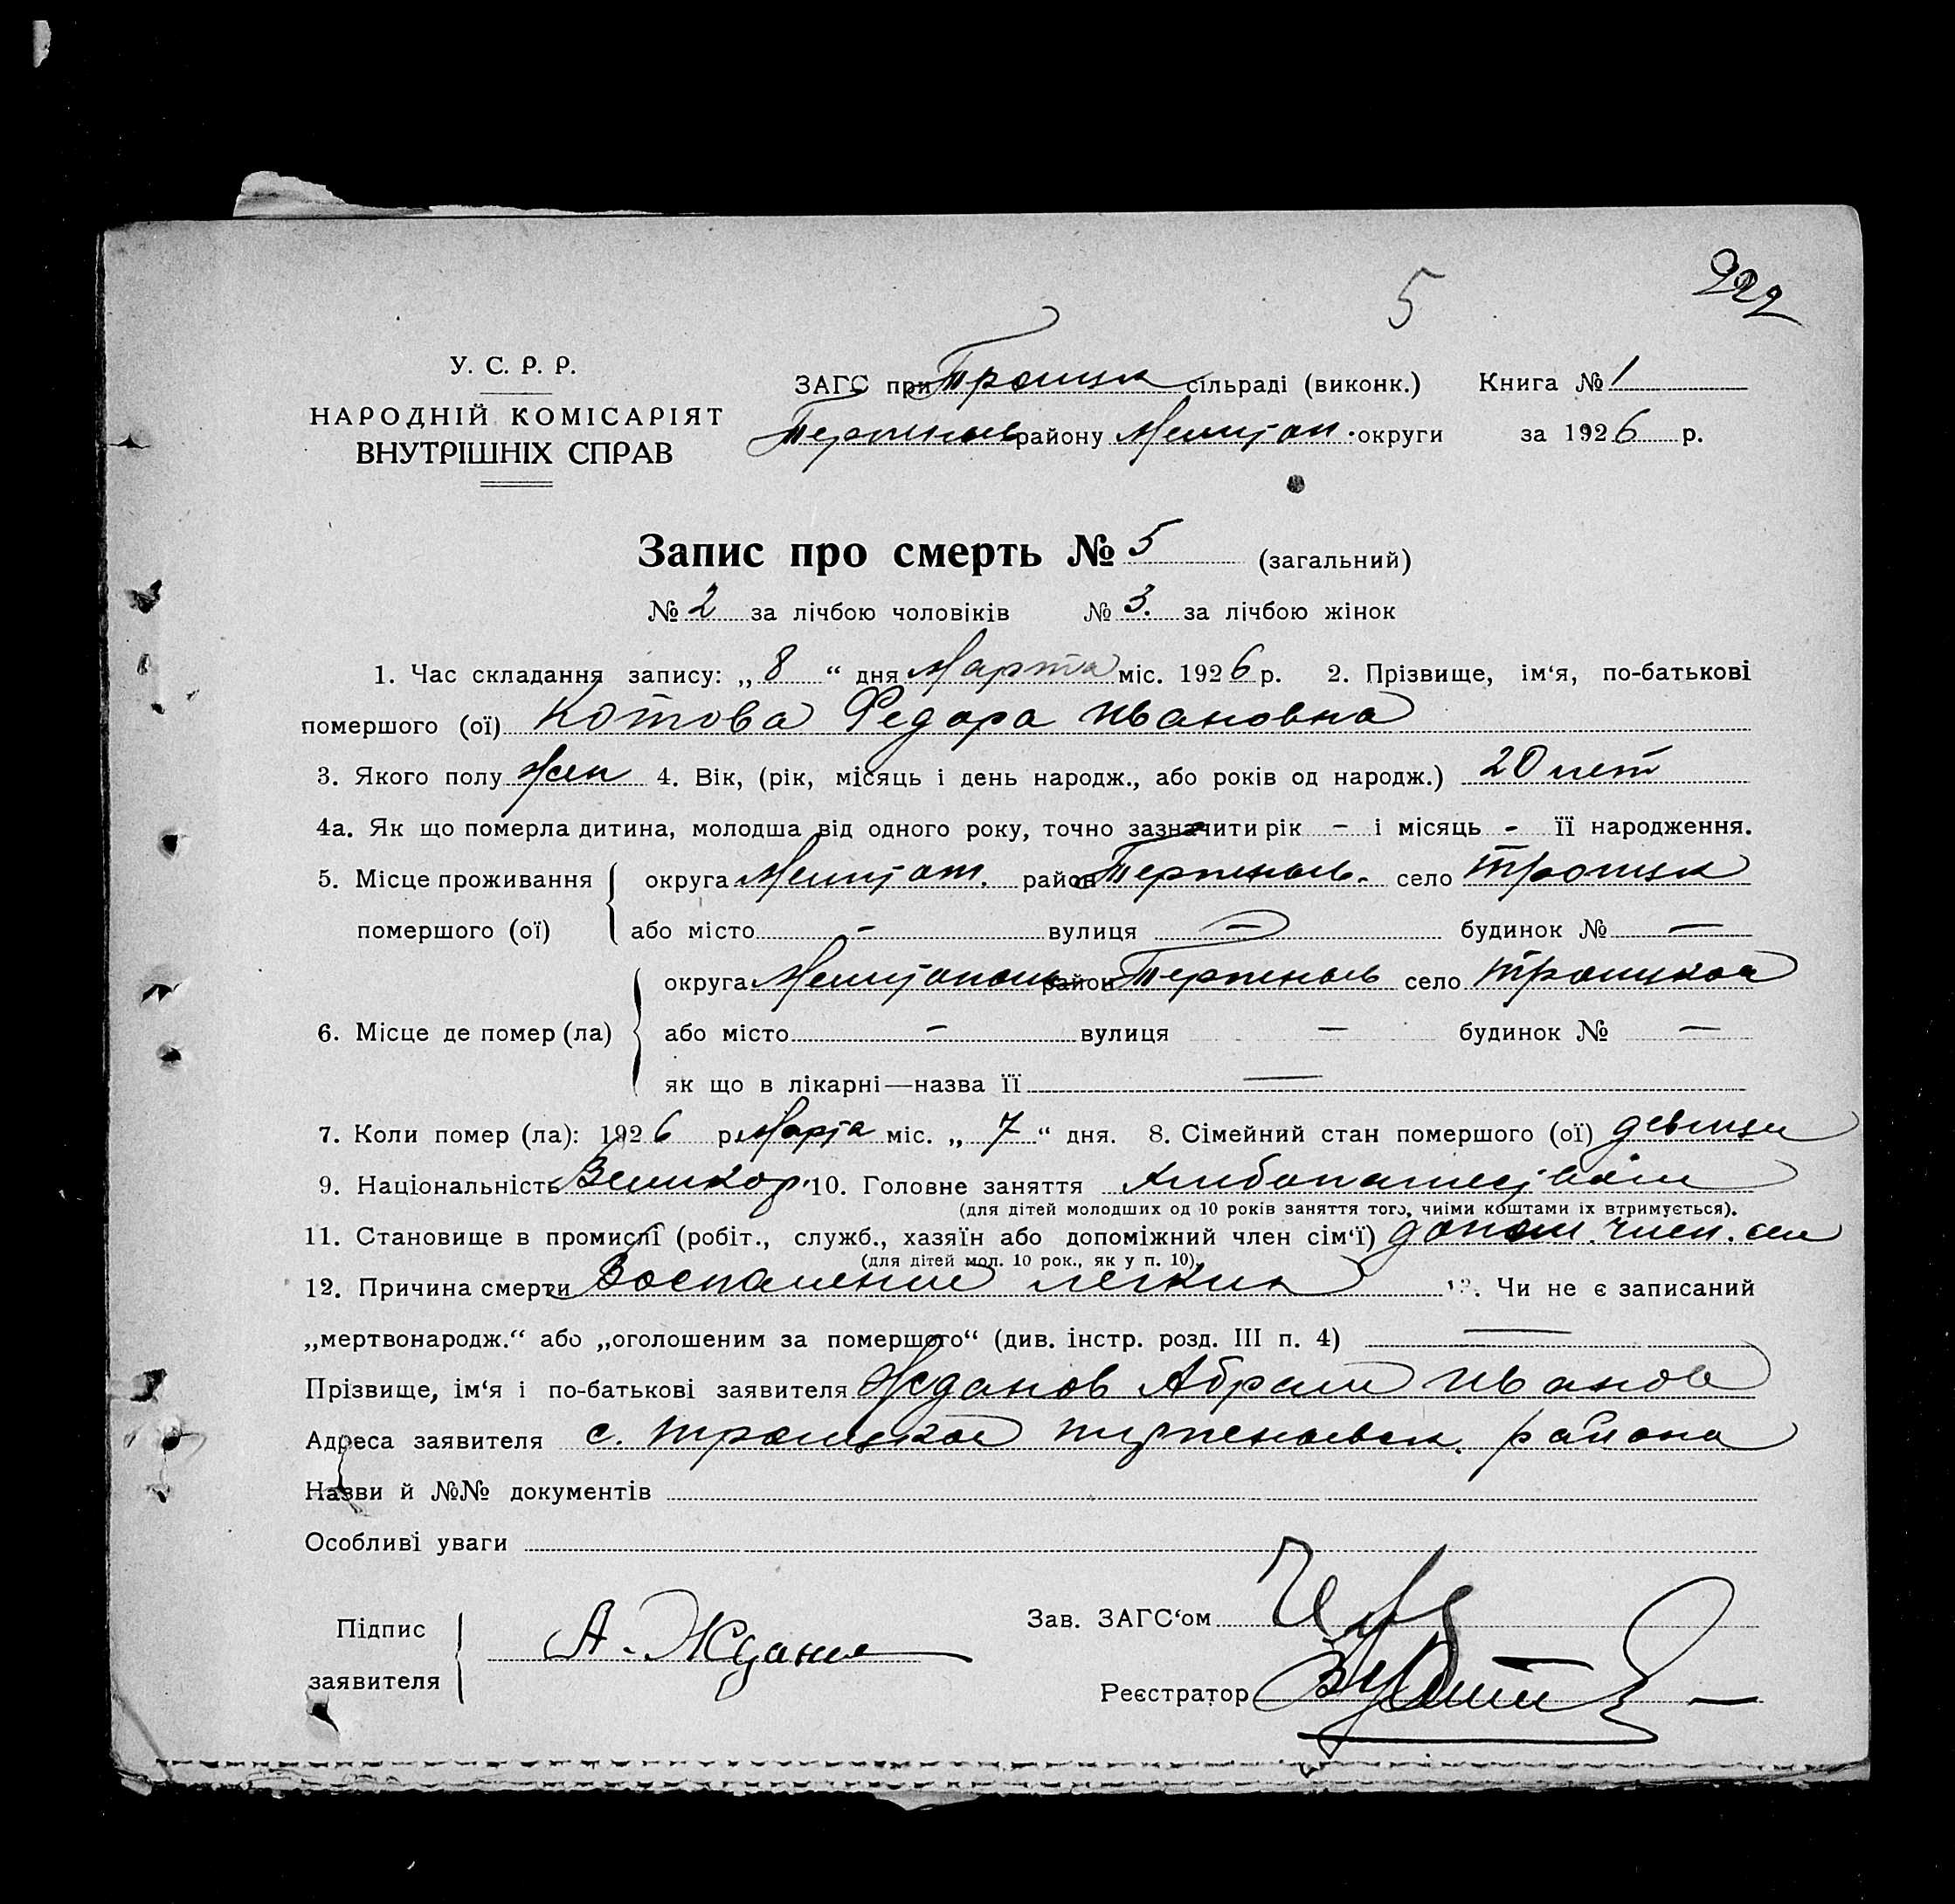 5
922
У. С. Р. Р.
НАРОДНІЙ КОМІСАРІЯТ
ВНУТРІШНІХ СПРАВ
ЗАГС при Троицк сільраді (виконк.) Книга № 1
Терпеньев району Мелитоп. округи за 1926 р.
Запис про смерть № 5 (загальний)
№ 2 за лічбою чоловіків № 3. за лічбою жінок
1. Час складання запису: „ 8 “ дня Марта міс. 1926 р. 2. Прізвище, ім‘я, по-батькові
помершого (ої) Котова Федора Ивановна
3. Якого полу жен 4. Вік, (рік, місяць і день народж., або років од народж.) 20 лет
4а. Як що померла дитина, молодша від одного року, точно зазначити рік – і місяць - її народження.
5. Місце проживання округа Мелитоп. район Терпеньев. село Троицк
помершого (ої) або місто – вулиця – будинок № —
6. Місце де помер (ла) округа Мелитополь район Терпеньев село Троицкой
або місто – вулиця — будинок № —
як що в лікарні—назва її —
7. Коли помер (ла): 1926 р. Марта міс. „ 7 “ дня. 8. Сімейний стан помершого (ої) девица
9. Національність Великор. 10. Головне заняття
(для дітей молодших од 10 років заняття того, чиїми коштами їх втримується).
11. Становище в промислі (робіт., служб., хазяїн або допоміжний член сім‘ї) допом. член. сем
(для дітей мол. 10 рок., як у п. 10).
12. Причина смерти Воспаление легких 13. Чи не є записаний
„мертвонародж.“ або „оголошеним за помершого“ (див. інстр. розд. III п. 4) —
Прізвище, ім‘я і по-батькові заявителя Жданов Абрам Иванов
Адреса заявителя с. Троицкой Терпеньевск. района
Назви й №№ документів
Особливі уваги
Підпис
заявителя
А. Жданов
Зав. ЗАГС‘ом
Реєстратор